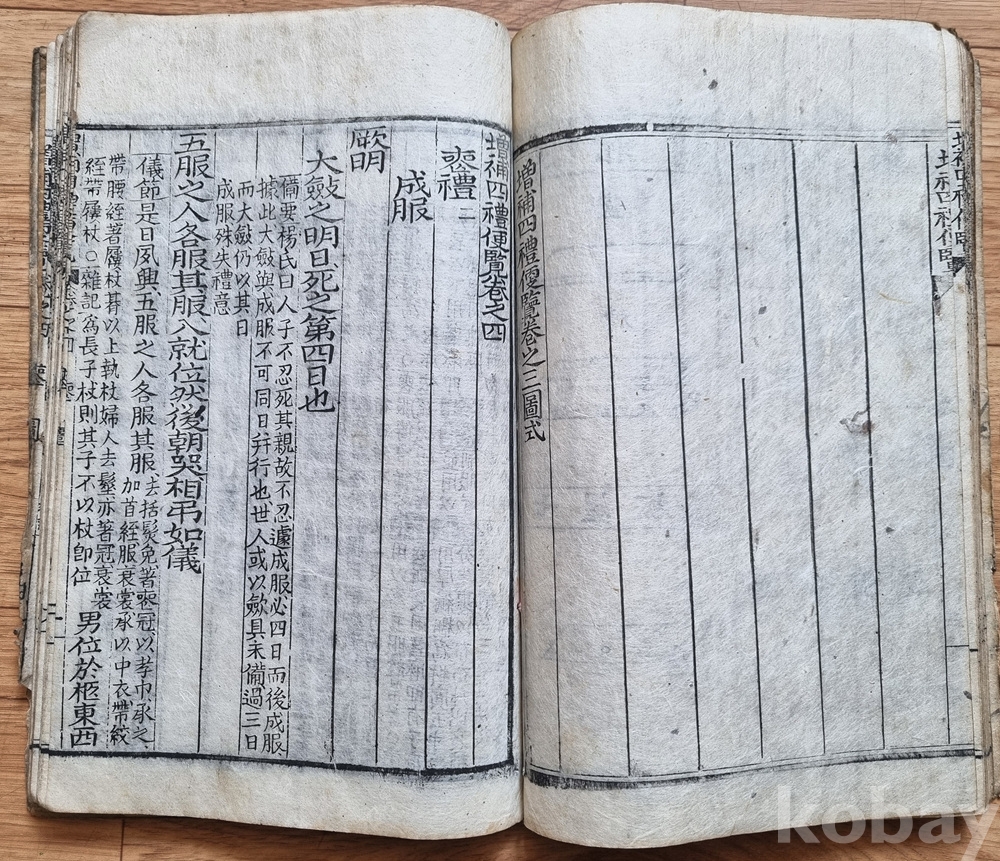 增補四禮便覽卷之三圖式
增補四禮便覽卷之四
喪禮二
成服
厥明
大斂之明日死之第四日也
備要楊氏曰人子不忍死其親故不忍遽成服必四日而後成服
據此大斂與成服不可同日并行也世人或以斂具未備過三日
而大斂仍以其日
成服殊失禮意
五服之人各服其服入就位然後朝哭相弔如儀
儀節是日夙興五服之人各服其服
去括髮免著喪冠以孝巾承之
加首絰服衰裳承以中衣帶絞
帶腰絰著屨杖朞以上執杖婦人去髽亦著冠衰裳
絰帶屨杖○雜記爲長子杖則其子不以杖卽位
男位於柩東西
kobay